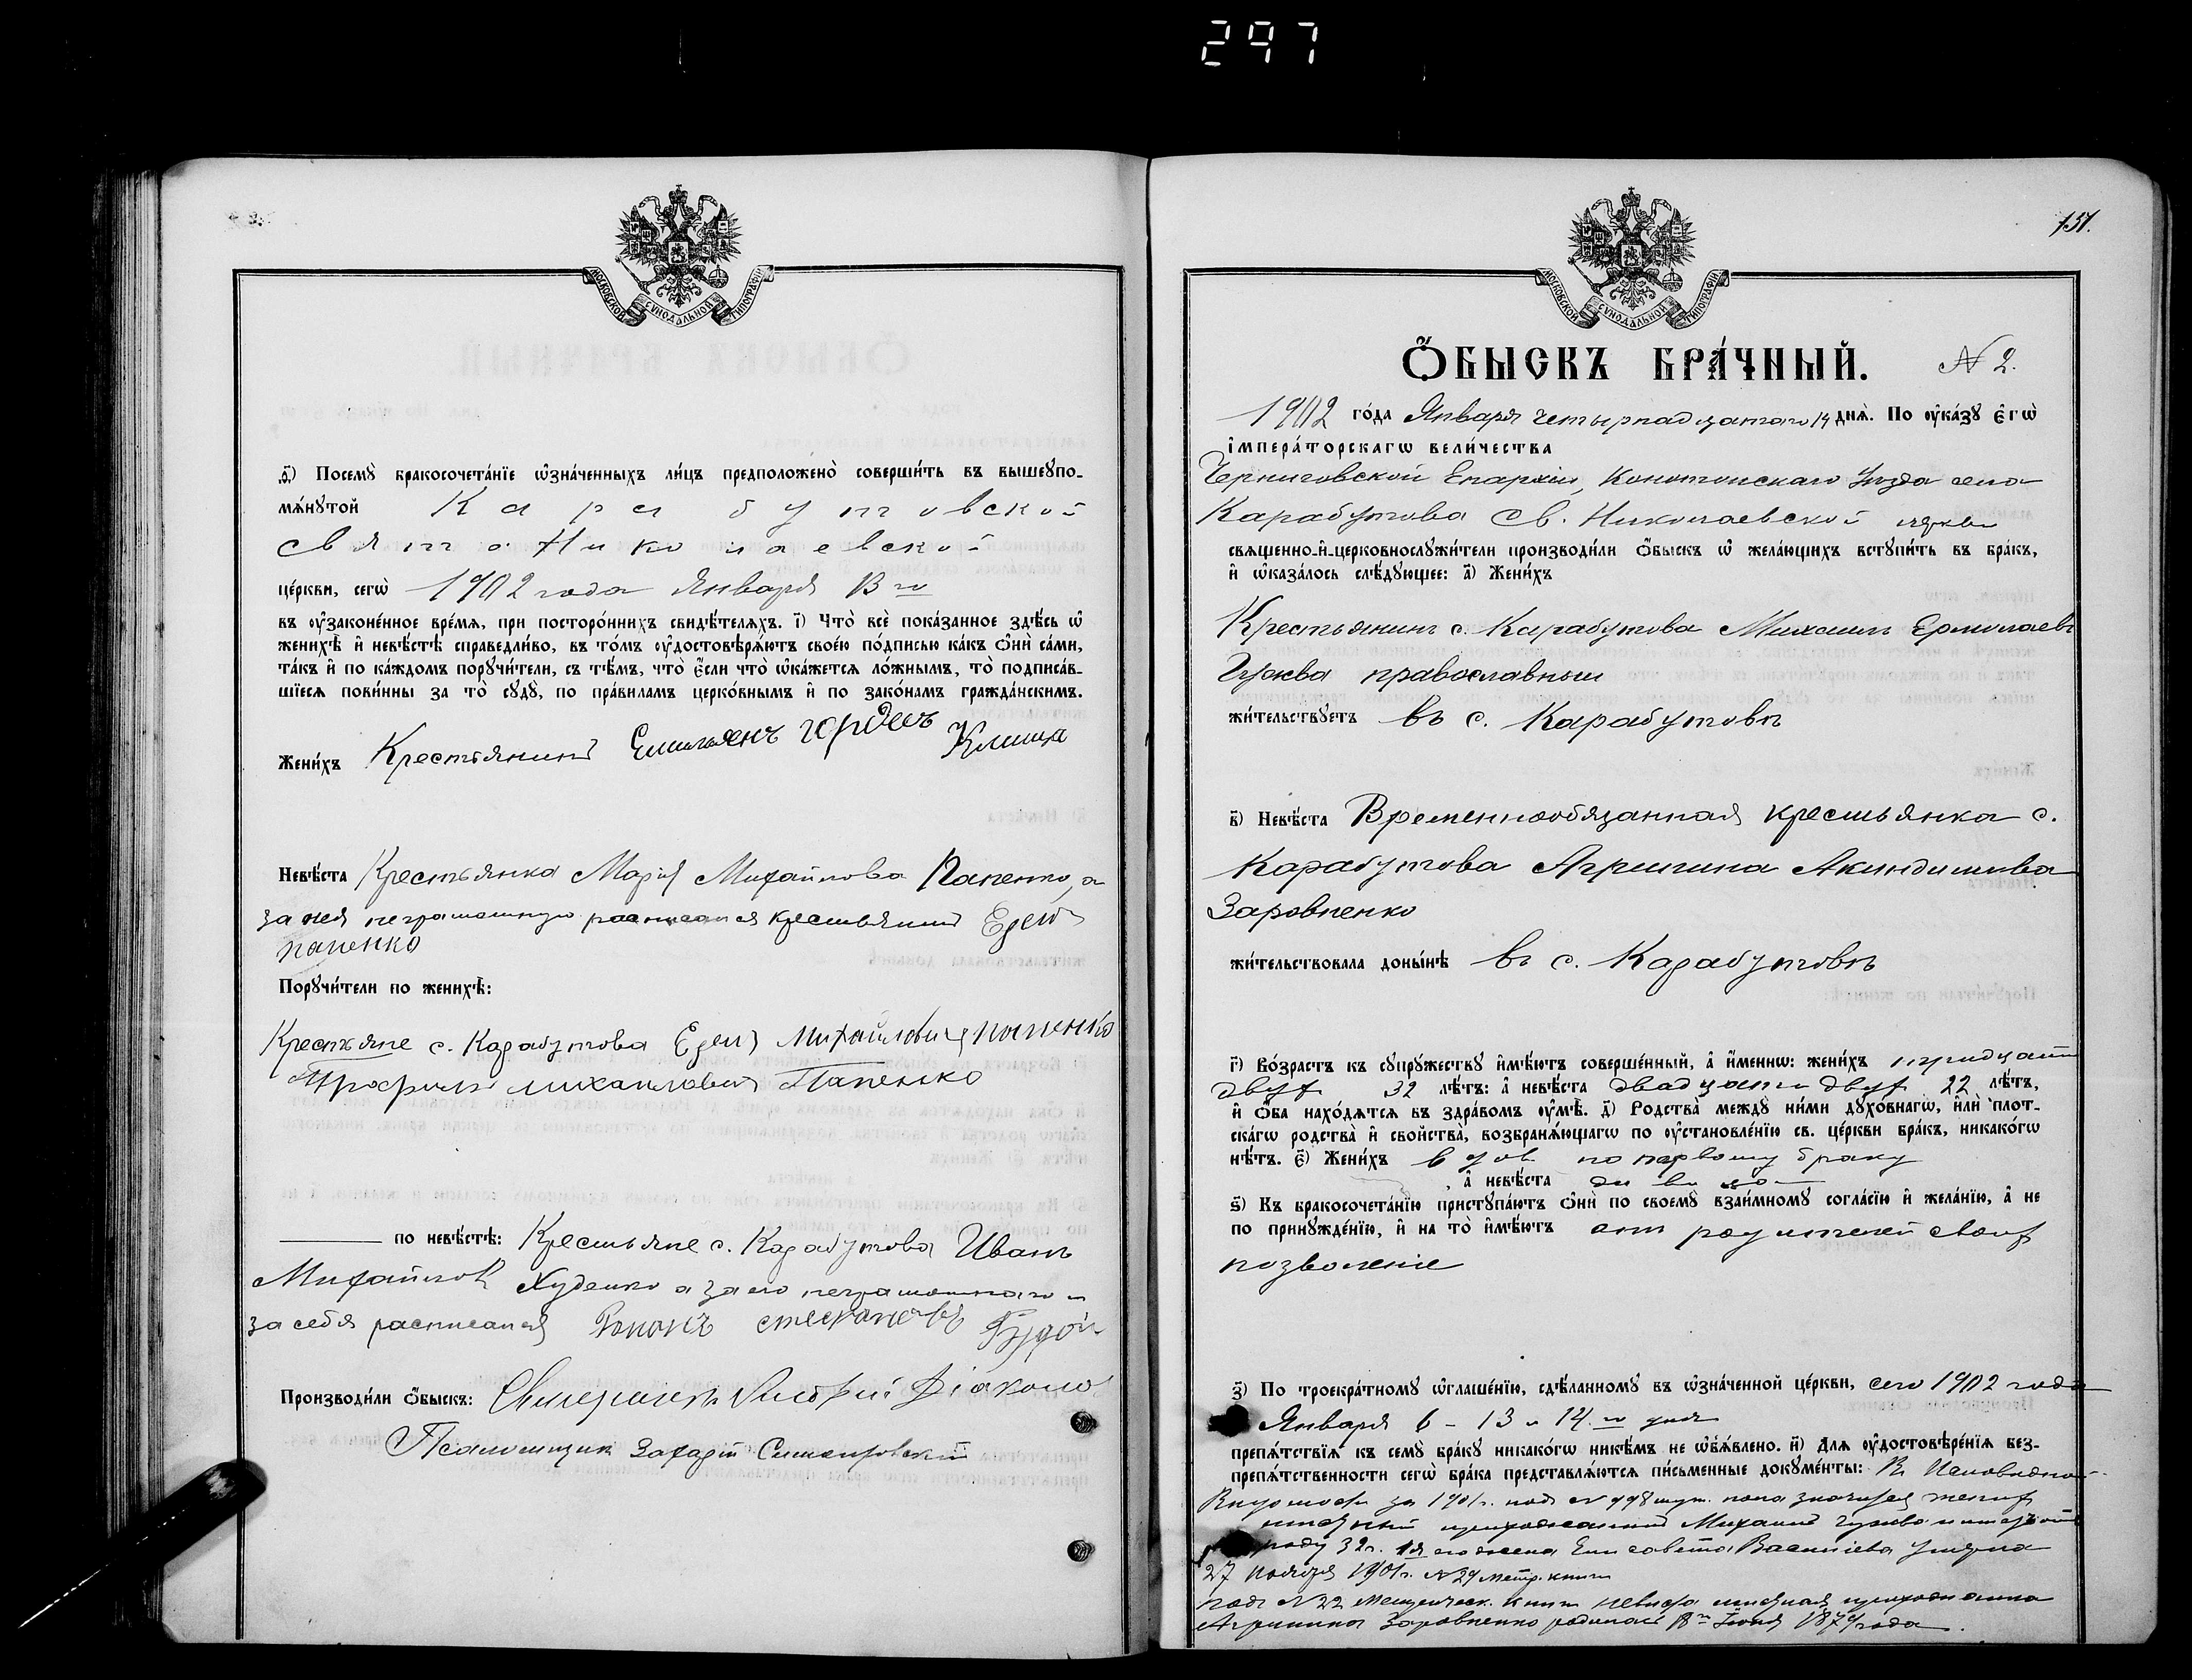 297
МОСКОВСКОЙ СѴНОДАЛЬНОЙ ТИПОГРАФІИ
ѳ҃) Посемꙋ̀ бракосочета́нїе ѡ҆зна́ченныхъ ли́цъ предположено̀ соверши́ть въ вышеꙋпо-
мѧ́нꙋтой Карабутовской
Свято Николаевской
це́ркви, сегѡ̀ 1902 года Января
въ ᲂу҆зако́ненное вре́мѧ, при посторо́ннихъ свидѣ́телѧхъ. і҃) Что̀ всѐ пока́занное здѣ́сь ѡ҆
женихѣ̀ и҆ невѣ́стѣ справедли́во, въ то́мъ ᲂу҆достовѣрѧ́ютъ свое́ю по́дписью ка́къ ѻ҆нѝ са́ми,
та́къ и҆ по ка́ждомъ порꙋчи́тели, съ тѣ́мъ, что̀ є҆́сли что̀ ѡ҆ка́жетсѧ ло́жнымъ, то̀ подписа́в-
шїесѧ пови́нны за то̀ сꙋдꙋ̀, по пра́виламъ церко́внымъ и҆ по зако́намъ гражда́нскимъ.
Жени́хъ Крестьянинъ Емильянъ Гордеевъ
Невѣ́ста Крестьянка Марія Михайлова Папенко, а
за нея неграмотную расписался крестьянинъ
папенко
Порꙋчи́тели по женихѣ̀:
Крестьяне с. Карабутова Михайловичъ папенко
Трофимъ михайловичъ Папенко
по невѣ́стѣ: Крестьяне с. Карабутова Иванъ
Михайловъ Худенко а за его неграмотнаго и
за себя расписался
Производи́ли ѻ҆́быскъ: Священникъ
Псаломщик Захарій
151.
МОСКОВСКОЙ СѴНОДАЛЬНОЙ ТИПОГРАФІИ
Ѻ҆́БЫСКЪ БРА́ЧНЫЙ. N 2.
1902 го́да Января четырнадцатаго 14 днѧ̀. По ᲂу҆ка́зꙋ є҆гѡ̀
і҆мпера́торскагѡ вели́чества
Черниговской Епархіи, Конотопскаго Уѣзда села
Карабутова Св. Николаевской церкви
свѧщенно-и҆-церковнослꙋжи́тели производи́ли ѻ҆́быскъ ѡ҆ жела́ющихъ встꙋпи́ть въ бра́къ,
и҆ ѡ҆каза́лось слѣ́дꙋющее: а҃) Жени́хъ
Крестьянинъ с. Карабутова Михаилъ Ермолаевъ
православный
жи́тельствꙋетъ въ с. Карабутовѣ
в҃) Невѣ́ста Временнообязанная крестьянка с.
Карабутова Агрипина Акиндинова
Заровненко
жи́тельствовала доны́нѣ въ с. Карабутовѣ
г҃) Во́зрастъ къ сꙋпрꙋ́жествꙋ и҆мѣ́ютъ соверше́нный, а҆ и҆́меннѡ: жени́хъ тридцати
двухъ 32 лѣ́тъ: а҆ невѣ́ста двадцати двухъ 22 лѣ́тъ,
и҆ ѻ҆́ба нахо́дѧтсѧ въ здра́вомъ ᲂу҆мѣ̀. д҃) Родства̀ междꙋ̀ ни́ми дꙋхо́внагѡ, и҆лѝ пло́т-
скагѡ родства̀ и҆ сво́йства̀, возбранѧ́ющагѡ по ᲂу҆становле́нїю св. це́ркви бра́къ, никако́гѡ
нѣ́тъ. є҃) Жени́хъ вдов. по первому браку
, а҆ невѣ́ста
ѕ҃) Къ бракосочета́нїю пристꙋпа́ютъ ѻ҆нѝ по своемꙋ̀ взаи́мномꙋ согла́сїю и҆ жела́нїю, а҆ не
по принꙋжде́нїю, и҆ на то̀ и҆мѣ́ютъ отъ родителей своихъ
позволеніе
з҃) По троекра́тномꙋ ѡ҆глаше́нїю, сдѣ́ланномꙋ въ ѡ҆зна́ченной це́ркви, сего 1902 года
Января 6 - 13 и 14 го дня
препѧ́тствїѧ къ семꙋ̀ бра́кꙋ никако́гѡ никѣ́мъ не ѡ҆б̾ѧ́влено. и҃) Длѧ ᲂу҆достовѣре́нїѧ без-
препѧ́тственности сегѡ̀ бра́ка представлѧ́ютсѧ пи́сьменные докꙋме́нты: Въ Исповѣдной
за 1901 г. подъ N значится женихъ
Михаилъ
32 г. его жена Елисавета Васильева умерла
27 ноября 1901 г. N 29 метр. книги
подъ N 22 Метрическ. книги невѣста прихожанка
Агрипина Заровненко родилась Іюня 1879 года.